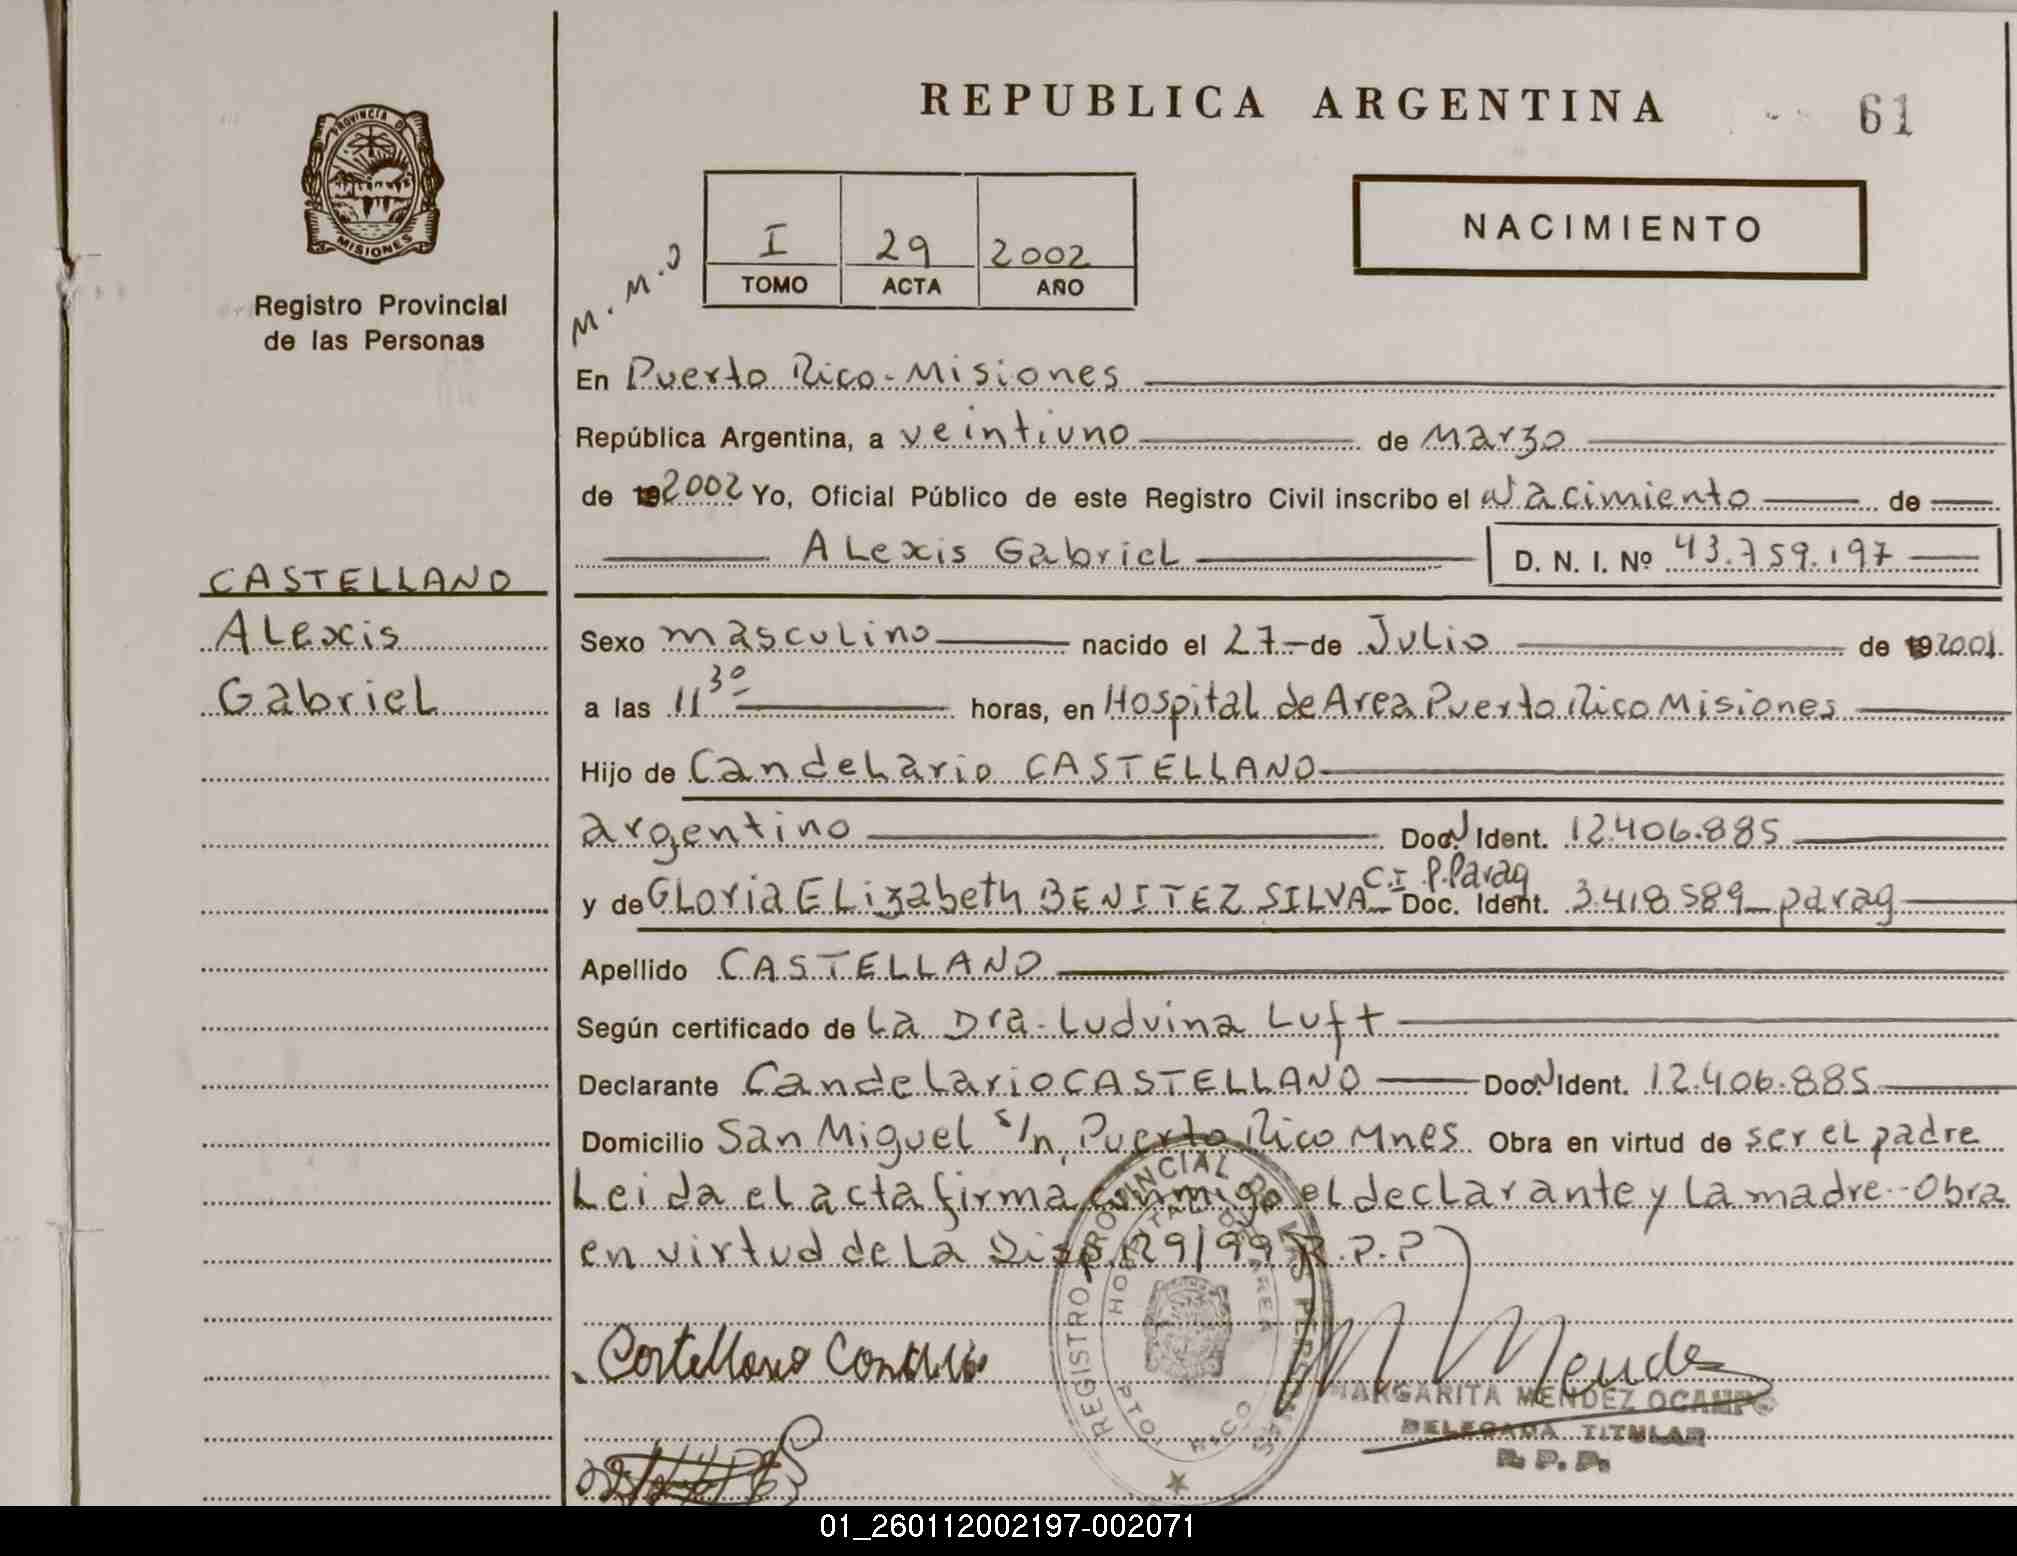 REPUBLICA ARGENTINA
61
PROVINCIA D
MISIONES
Registro Provincial
de las Personas
M. M. O
I 29 2002
TOMO ACTA AÑO
NACIMIENTO
En Puerto Rico - Misiones
República Argentina, a veintiuno de Marzo
de 19 2002 Yo, Oficial Público de este Registro Civil inscribo el Nacimiento de
Alexis Gabriel D. N. I. Nº 43.759.197
CASTELLANO
Alexis
Gabriel
Sexo masculino nacido el 27 de Julio de 19 2001.
a las 11 30 horas, en Hospital de Area Puerto Rico Misiones
Hijo de Candelario CASTELLANO
argentino Doc. Ident. 12.406.885
y de Gloria Elizabeth BENITEZ SILVA C.I P.Parag Doc. Ident. 3.418.589 parag
Apellido CASTELLANO
Según certificado de La Dra. Ludvina Luft
Declarante Candelario CASTELLANO Doc. Ident. 12.406.885
Domicilio San Miguel s/n, Puerto Rico Mnes Obra en virtud de ser el padre
Leida el acta firma conmigo el declarante y La madre.- Obra
en virtud de La Disp. 129/99 R.P.P
REGISTRO PROVINCIAL DE LAS PERSONAS
HOSPITAL DE AREA
PTO. RICO
Castellano
M Mendez
MARGARITA MENDEZ OCAMPO
DELEGADA TITULAR
R. P. P.
01_260112002197-002071